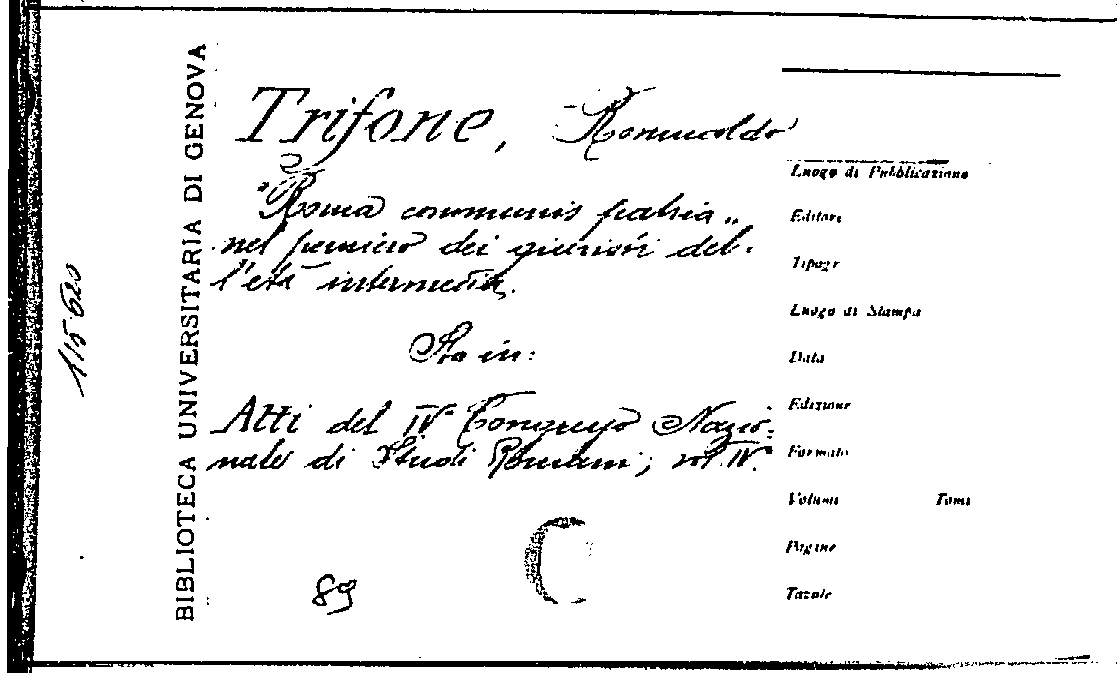 BIBLIOTECA UNIVERSITARIA DI GENOVA
115620
Trifone, Romualdo
"Roma communis patria„
nel pensiero dei giuristi del-
l'età intermedia.
Sta in:
Atti del IV° Congresso Nazio-
nale di Studi Romani; vol. IV.°
89
C
Luogo di Pubblicazione
Editore
Tipogr
Luogo di Stampa
Data
Edizione
Formato
Volumi Tomi
Pagine
Tavole